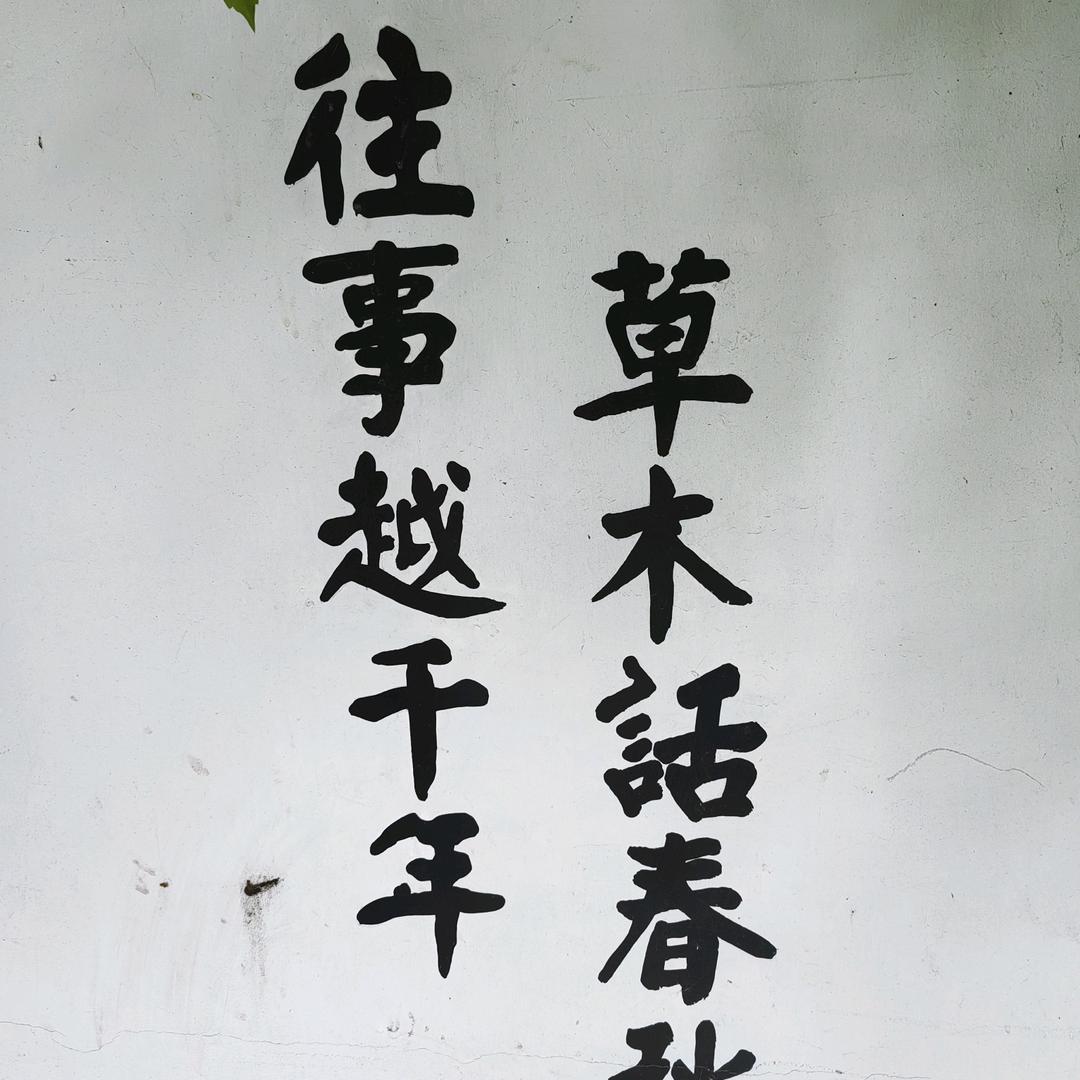 往事越千年
草木話春秋